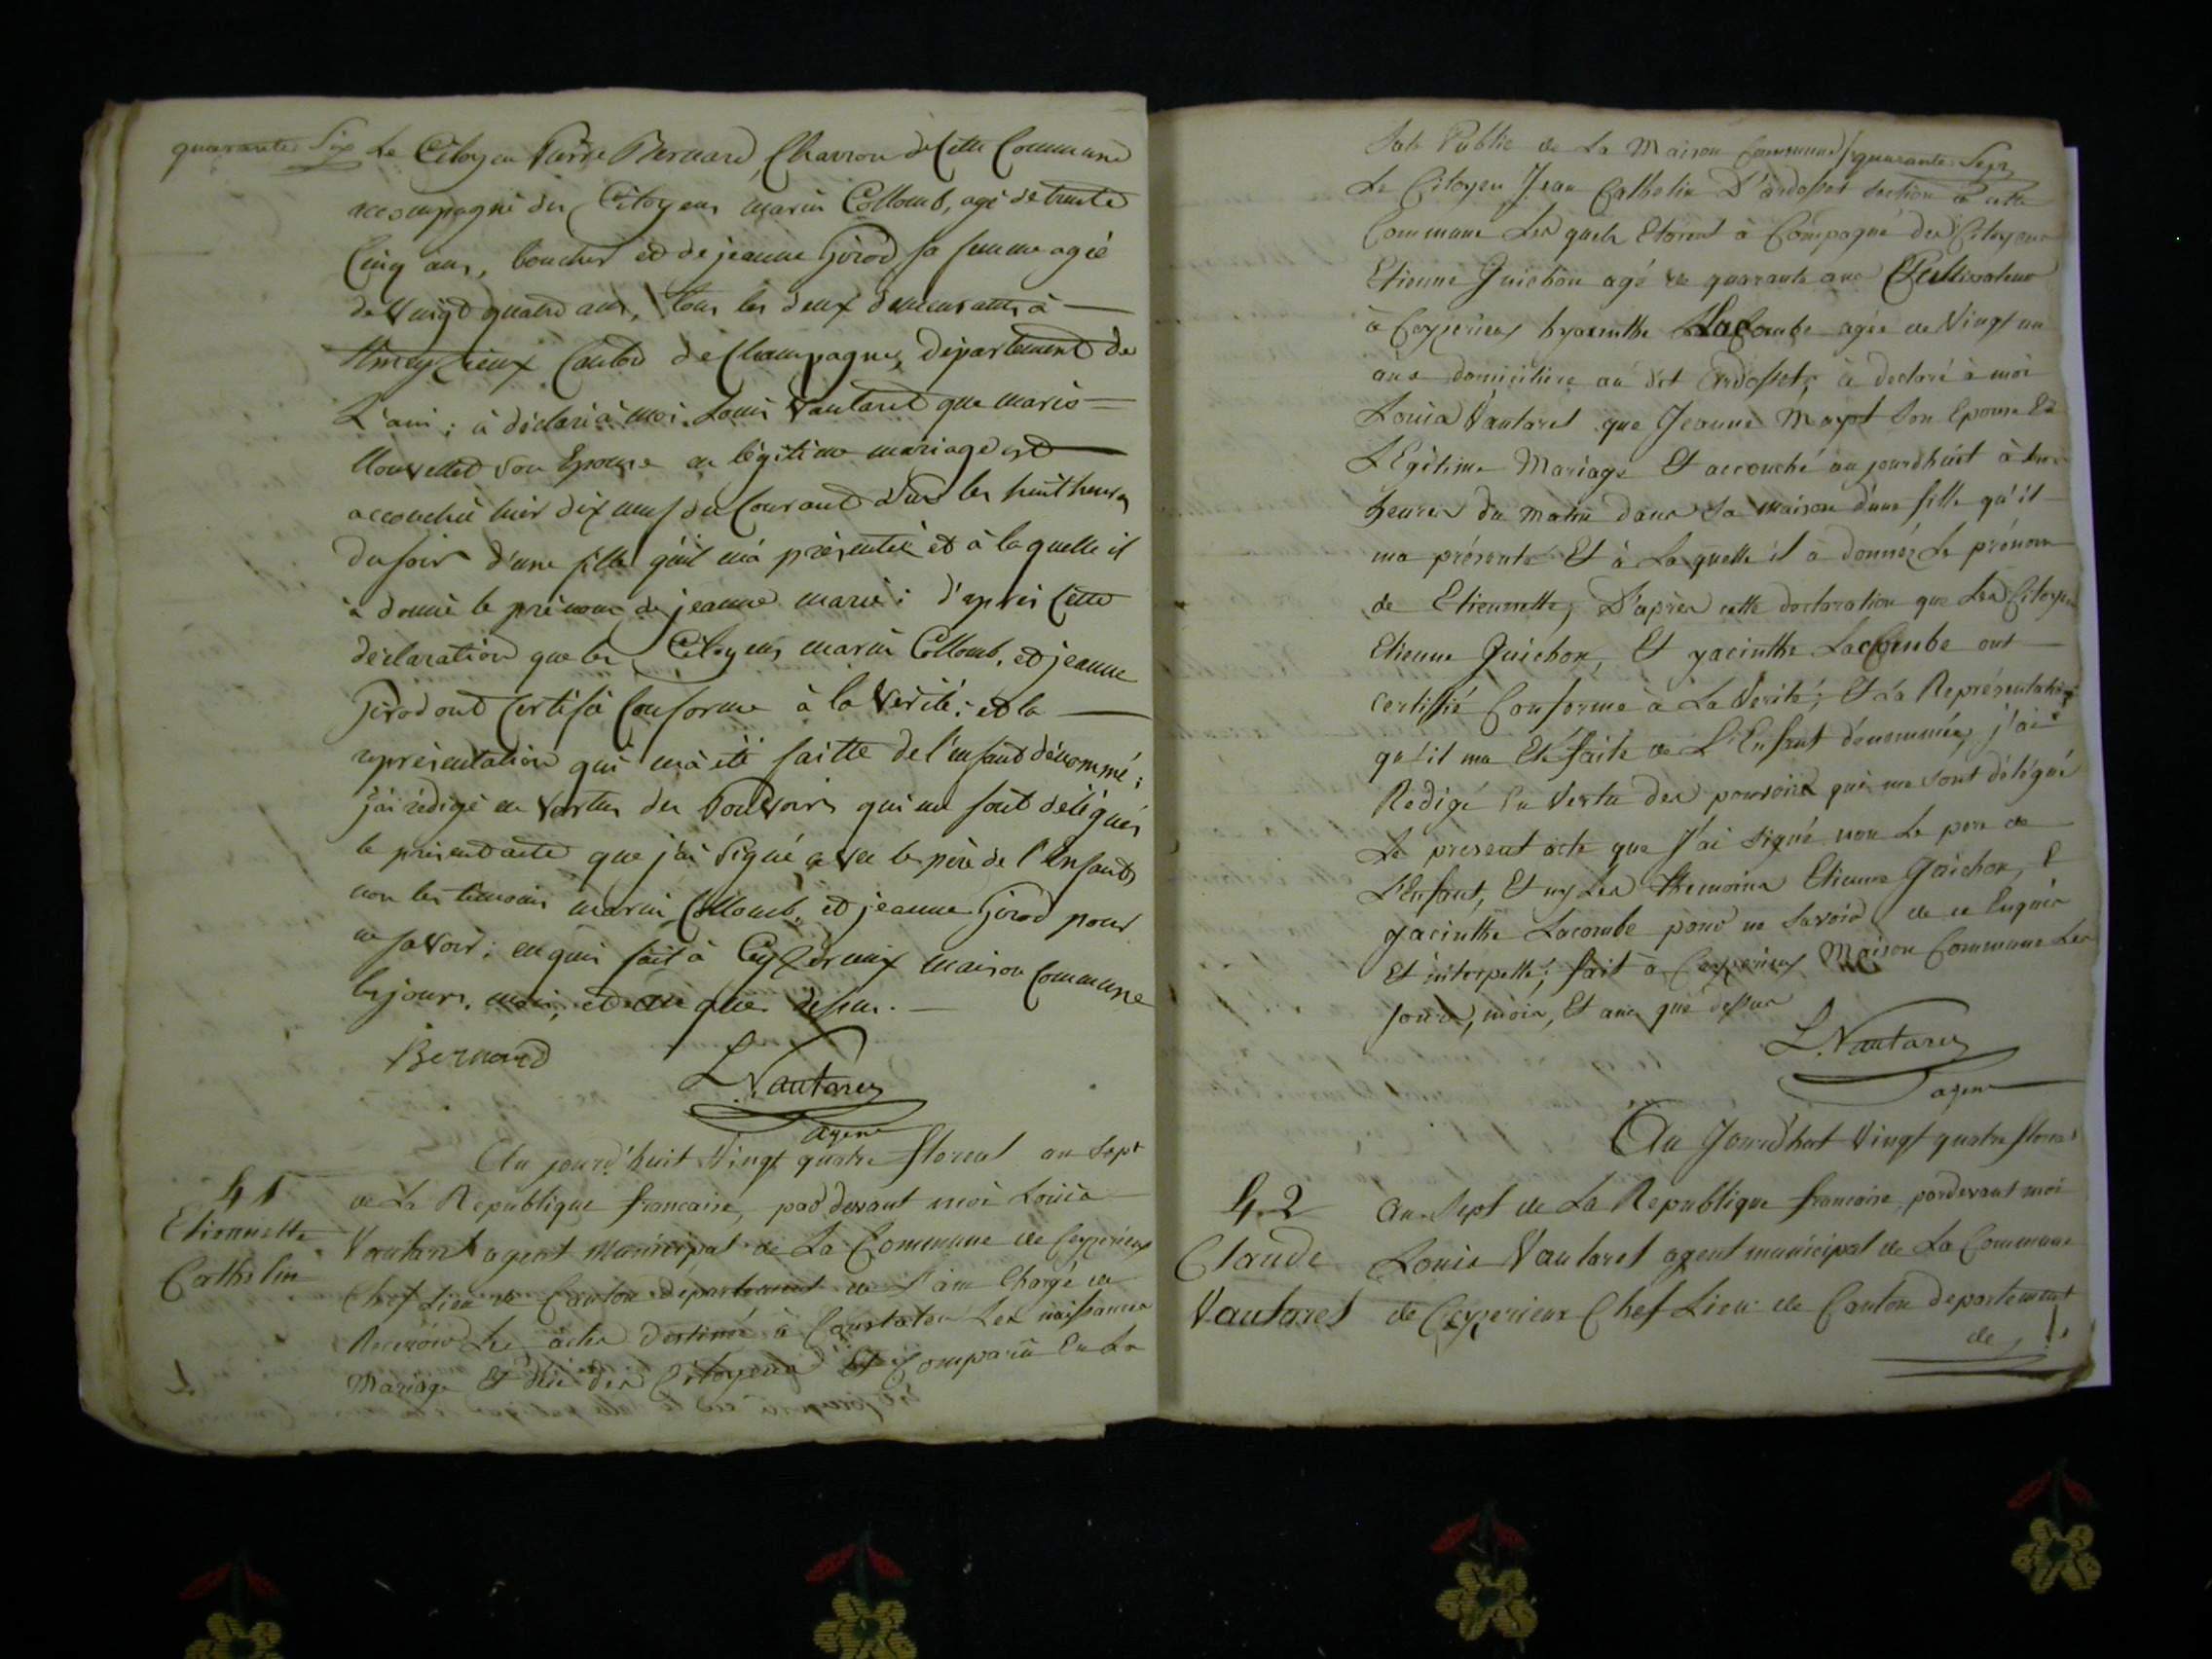 quarante Six
Le Citoyen Pierre Bernard, Charron de Cette Commune
accompagné des Citoyens marin Collomb, agé de trente
Cinq ans, boucher et de jeanne Girod sa femme agée
de Vingt quatre ans, tous les deux demeurants à
Ameyzieux Canton de Champagne, département de
L'ain; à déclaré à moi Louis Vautaret que marie
Nouvellet son Epouse en légitime mariage est
accouchée hier dix neuf du Courant Sur les huit heures
du soir d'une fille qu'il m'à présentée et à laquelle il
à donné le prénom de jeanne marie; d'après Cette
déclaration que les Citoyens marin Collomb, et jeanne
Girod ont Certifié Conforme à la Verité; et la
représentation qui m'à été faitte de l'enfant dénommé;
j'ai rédigé en Vertus des Pouvoirs qui me sont délégués
le présent acte que j'ai Signé avec le père de l'Enfant,
non les témoins marin Collomb, et jeanne Girod pour
ne savoir; enquis fait à Ceyzerieux maison Commune
les jours, mois, et an que dessus.
Bernard
L. Vautaret
agent
Au jourd'huit Vingt quatre floreal an Sept
41
de La Republique francaise, pardevant moi Louis
Etiennette
Vautaret agent Municipal de La Commune de Ceyzerieux
Cathelin
Chef Lieu de Canton departement de L'ain Chargé de
Recevoir Les actes destiné à Constater Les naissances
Mariage Et des Citoyens Et Comparû En La
Sale Public de La Maison Commune quarante Sept
Le Citoyen Jean Cathelin D'ardosset Section à cette
Commune Les quels Etoient à Compagné des Citoyens
Etienne Guichon agé de quarante ans Cultivateur
à Ceyzerieux hyacinthe LaCombe agée de Vingt un
ans domiciliere au dit Ardosset, à declaré à moi
Louis Vautaret que Jeanne Son Epouse En
LEgitime Mariage Et accouché au jourdhuit à
heures du Matin dans Sa Maison d'une fille qu'il
ma présenté Et à Laquelle il à donnéz Le prénom
de Etiennette, D'après cette declaration que Les Citoyens
Etienne Guichon, Et yacinthe LaCombe ont
certiffié Conforme à La Verité; Et La Représentation
qu'il ma Eté faite de L'Enfant dénommée, j'ai
Redigé En Vertu des pouvoirs qui me Sont délégué
Le present acte que J'ai signé non Le pere de
L'Enfant, Et ny Les themoins Etienne Guichon, E
yacinthe Lacombe pour ne Savoir de ce Enquis
Et interpellé; fait à Ceyzerieux Maison Commune Les
jours, mois, Et ans que dessus
L. Vautaret
agent
Au Jourdhuit Vingt quatre floreal
42
an Sept de La Republique francaise, pardevant moi
Claude
Louis Vautaret agent municipal de La Commune
Vautaret
de Ceyzerieux Chef Lieu de Canton departement
de